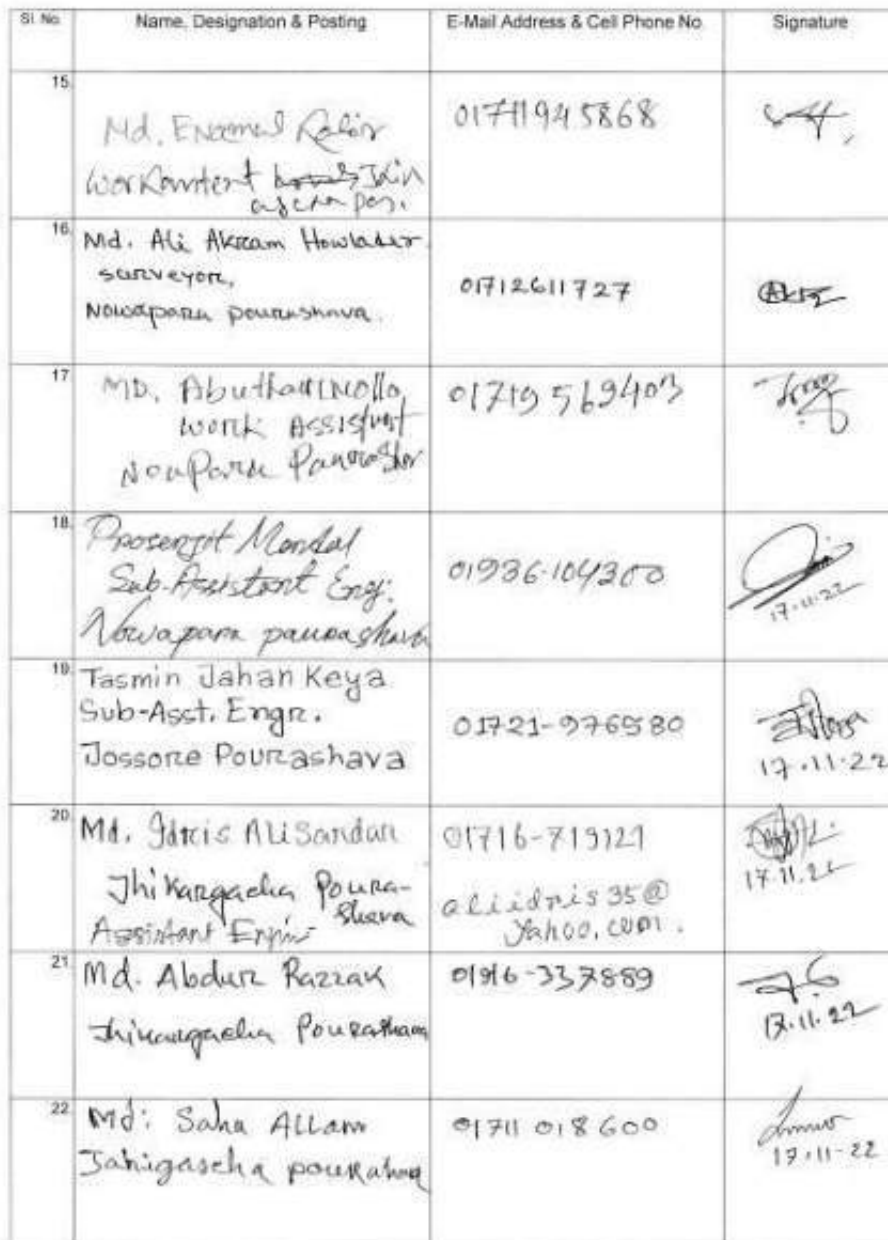 Sl. No. Name, Designation & Posting E-Mail Address & Cell Phone No. Signature
15.
Md. Enamul Kabir
01711945868
16.
Md. Ali Akram Howlader
surveyor,
Nowapara pourashava.
01712611727
17
MD. Abutha
work Assistant
01719569403
18.
Prosenjit Mondal
Sub-Assistant Eng:
Nowapara paurashava
01936-104300
17.11.22
19.
Tasmin Jahan Keya
Sub-Asst. Engr.
Jossore Pourashava
01721-976580
17.11.22
20.
Md. Idris Ali Sardar
Jhikargacha Poura-
shava
Assistant
01716-719121
aliidris35@
yahoo.com.
17.11.22
21.
Md. Abdur Razzak
Jhikargacha Pourashava
01916-337889
17.11.22
22.
Md: Saha Allam
01711 018 600
17.11-22